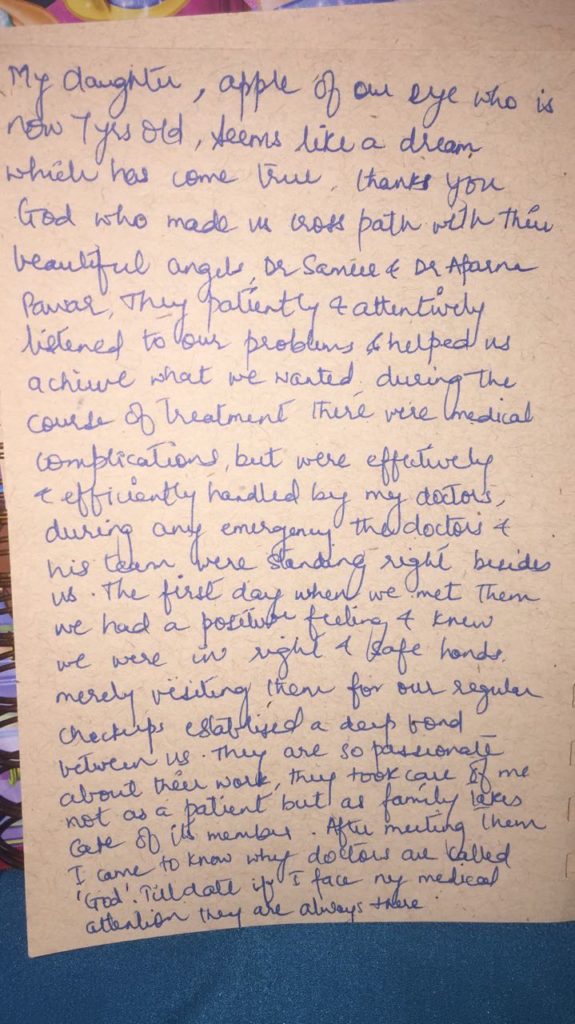 My daughter, apple of our eye who is
now 7yrs old, seems like a dream
which has come true. thanks you
God who made us cross path with thei
beautiful angels, Dr Sameer & Dr Aparna
Pawar, They patiently & attentively
listened to our problems & helped us
achieve what we wanted. during the
course of treatment there were medical
complications, but were effectively
& efficiently handled by my doctors,
during any emergency the doctors &
his team were standing right besides
us. The first day when we met them
we had a positive feeling & knew
we were in right & safe hands.
merely visiting them for our regular
checkups establised a deep bond
between us. They are so passionate
about their work, they took care of me
not as a patient but as family takes
care of its member. After meeting them
I came to know why doctors are called
'God'. Till date if I face ny medical
attention they are always there.